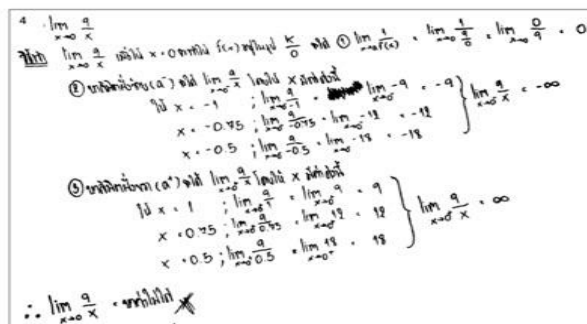 4. lim x→0 9/x
วิธีทำ lim x→0 9/x เมื่อให้ x = 0 จะได้ f(x) อยู่ในรูป K/0 จะได้ ① lim x→0 1/f(x) = lim x→0 1/(9/0) = lim x→0 0/9 = 0
② (a⁻) จะได้ lim x→0⁻ 9/x โดยให้ x มีค่าดังนี้
ให้ x = -1 ; lim x→0⁻ 9/-1 = lim x→0⁻ -9 = -9
x = -0.75 ; lim x→0⁻ 9/-0.75 = lim x→0⁻ -12 = -12
x = -0.5 ; lim x→0⁻ 9/-0.5 = lim x→0⁻ -18 = -18
} lim x→0⁻ 9/x = -∞
③ (a⁺) จะได้ lim x→0⁺ 9/x โดยให้ x มีค่าดังนี้
ให้ x = 1 ; lim x→0⁺ 9/1 = lim x→0⁺ 9 = 9
x = 0.75 ; lim x→0⁺ 9/0.75 = lim x→0⁺ 12 = 12
x = 0.5 ; lim x→0⁺ 9/0.5 = lim x→0⁺ 18 = 18
} lim x→0⁺ 9/x = ∞
∴ lim x→0 9/x = หาค่าไม่ได้